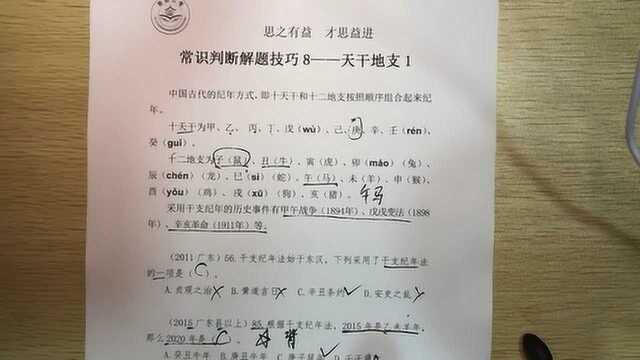 思之有益 才思益进
常识判断解题技巧 8——天干地支 1
中国古代的纪年方式，即十天干和十二地支按照顺序组合起来纪
年。
十天干为甲、乙、丙、丁、戊（wù）、己、庚、辛、壬（rén）、
癸（guǐ）。
十二地支为子（鼠）、丑（牛）、寅（虎）、卯（mǎo）（兔）、
辰（chén）（龙）、巳（sì）（蛇）、午（马）、未（羊）、申（猴）、
酉（yǒu）（鸡）、戌（xū）（狗）、亥（猪）。
午马
采用干支纪年的历史事件有甲午战争（1894年）、戊戌变法（1898
年）、辛亥革命（1911年）等。
（2011 广东）56. 干支纪年法始于东汉，下列采用了干支纪年法
的一项是（C）。
A. 贞观之治 B. 黄道吉日 C. 辛丑条约 D. 安史之乱
（2015 广东县以上）85. 根据干支纪年法，2015年是乙未羊年，
那么2020年是（C）。
A. 癸丑牛年 B. 庚丑牛年 C. 庚子鼠年